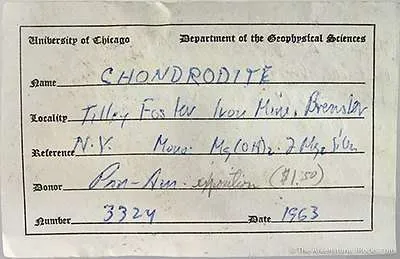 University of Chicago Department of the Geophysical Sciences
Name CHONDRODITE
Locality Tilly Foster Iron Mine, Brewster
Reference N.Y. Mono. Mg(OH)2·2 Mg2SiO4
Donor Pan-Am. exposition ($1.50)
Number 3324 Date 1963